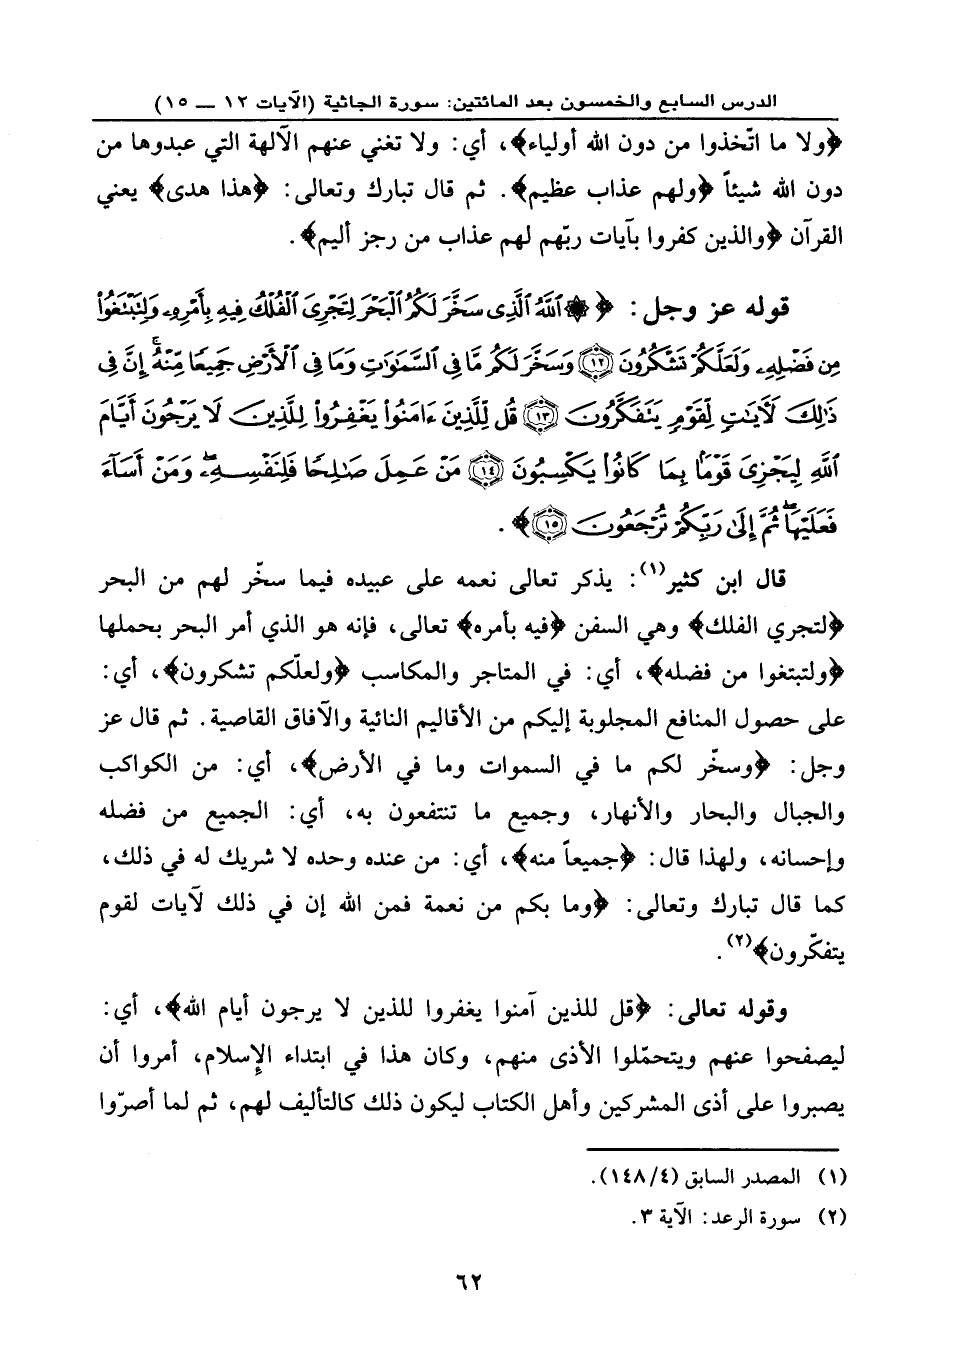 الدرس السابع والخمسون بعد المائتين: سورة الجاثية (الآيات ١٢ ــ ١٥)
﴿ولا ما اتّخذوا من دون الله أولياء﴾، أي: ولا تغني عنهم الآلهة التي عبدوها من
دون الله شيئاً ﴿ولهم عذاب عظيم﴾. ثم قال تبارك وتعالى: ﴿هذا هدى﴾ يعني
القرآن ﴿والذين كفروا بآيات ربّهم لهم عذاب من رجز أليم﴾.
قوله عز وجل: ﴿۞ ٱللَّهُ ٱلَّذِى سَخَّرَ لَكُمُ ٱلْبَحْرَ لِتَجْرِىَ ٱلْفُلْكُ فِيهِ بِأَمْرِهِۦ وَلِتَبْتَغُوا۟
مِن فَضْلِهِۦ وَلَعَلَّكُمْ تَشْكُرُونَ ﴿١٢﴾ وَسَخَّرَ لَكُم مَّا فِى ٱلسَّمَٰوَٰتِ وَمَا فِى ٱلْأَرْضِ جَمِيعًا مِّنْهُ ۚ إِنَّ فِى
ذَٰلِكَ لَءَايَٰتٍ لِّقَوْمٍ يَتَفَكَّرُونَ ﴿١٣﴾ قُل لِّلَّذِينَ ءَامَنُوا۟ يَغْفِرُوا۟ لِلَّذِينَ لَا يَرْجُونَ أَيَّامَ
ٱللَّهِ لِيَجْزِىَ قَوْمًۢا بِمَا كَانُوا۟ يَكْسِبُونَ ﴿١٤﴾ مَنْ عَمِلَ صَٰلِحًا فَلِنَفْسِهِۦ ۖ وَمَنْ أَسَآءَ
فَعَلَيْهَا ۖ ثُمَّ إِلَىٰ رَبِّكُمْ تُرْجَعُونَ ﴿١٥﴾﴾.
قال ابن كثير(١): يذكر تعالى نعمه على عبيده فيما سخّر لهم من البحر
﴿لتجري الفلك﴾ وهي السفن ﴿فيه بأمره﴾ تعالى، فإنه هو الذي أمر البحر بحملها
﴿ولتبتغوا من فضله﴾، أي: في المتاجر والمكاسب ﴿ولعلّكم تشكرون﴾، أي:
على حصول المنافع المجلوبة إليكم من الأقاليم النائية والآفاق القاصية. ثم قال عز
وجل: ﴿وسخّر لكم ما في السموات وما في الأرض﴾، أي: من الكواكب
والجبال والبحار والأنهار، وجميع ما تنتفعون به، أي: الجميع من فضله
وإحسانه، ولهذا قال: ﴿جميعاً منه﴾، أي: من عنده وحده لا شريك له في ذلك،
كما قال تبارك وتعالى: ﴿وما بكم من نعمة فمن الله إن في ذلك لآيات لقوم
يتفكّرون﴾(٢).
وقوله تعالى: ﴿قل للذين آمنوا يغفروا للذين لا يرجون أيام الله﴾، أي:
ليصفحوا عنهم ويتحمّلوا الأذى منهم، وكان هذا في ابتداء الإسلام، أمروا أن
يصبروا على أذى المشركين وأهل الكتاب ليكون ذلك كالتأليف لهم، ثم لما أصرّوا
(١) المصدر السابق (١٤٨/٤).
(٢) سورة الرعد: الآية ٣.
٦٢